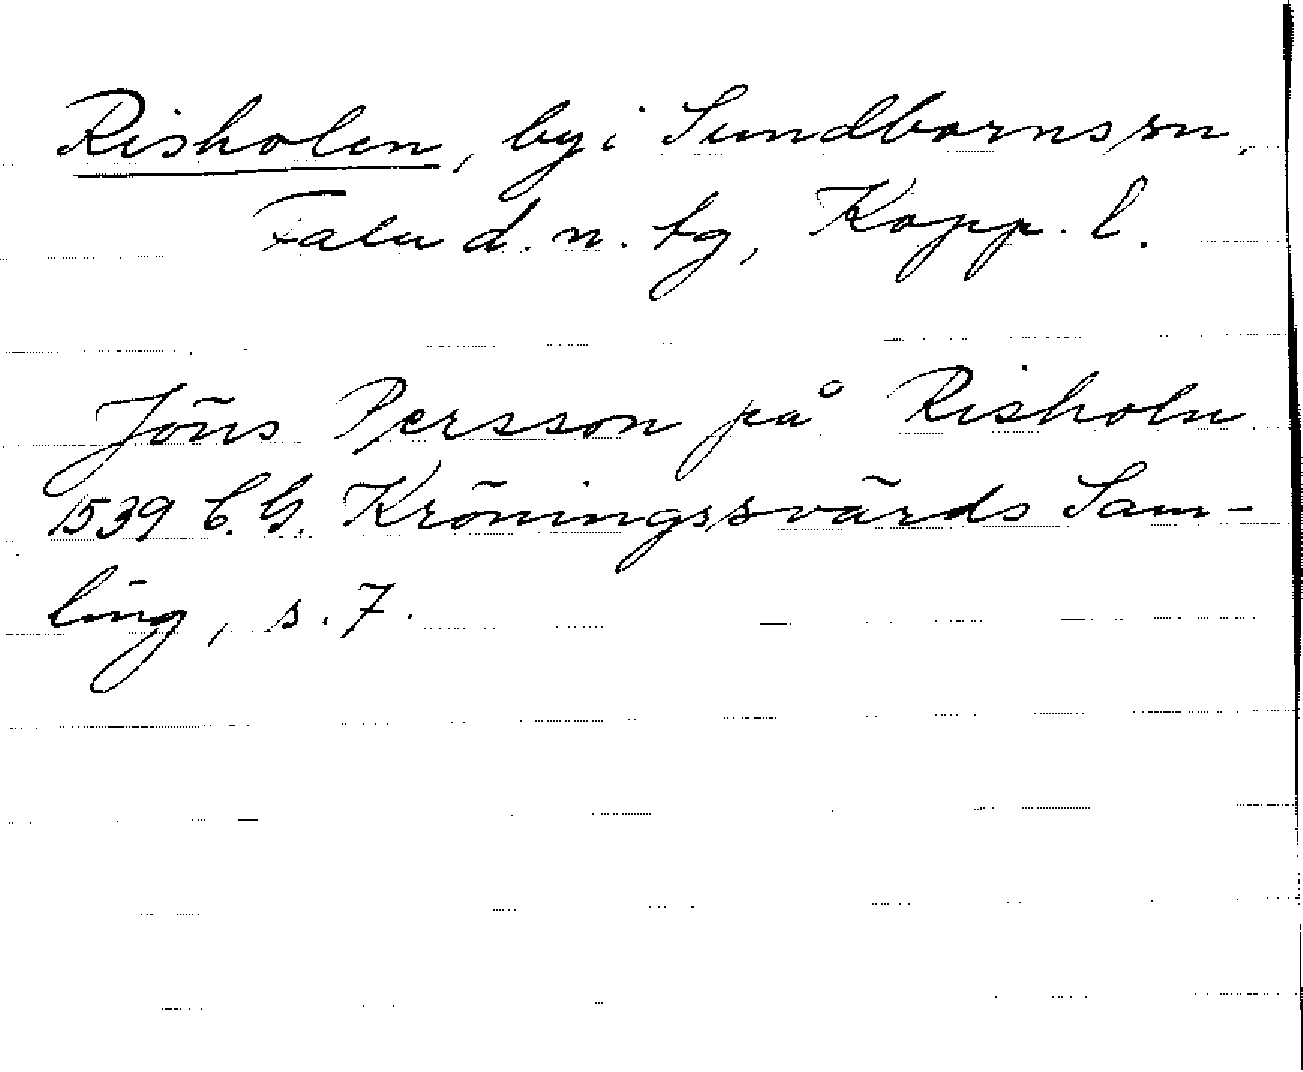 Risholen, by i Sundborns sn,
Falu d. n. tg, Kopp. l.
Jöns Persson på Risholn
1539 C.G. Kröningssvärds Sam-
ling, s. 7.